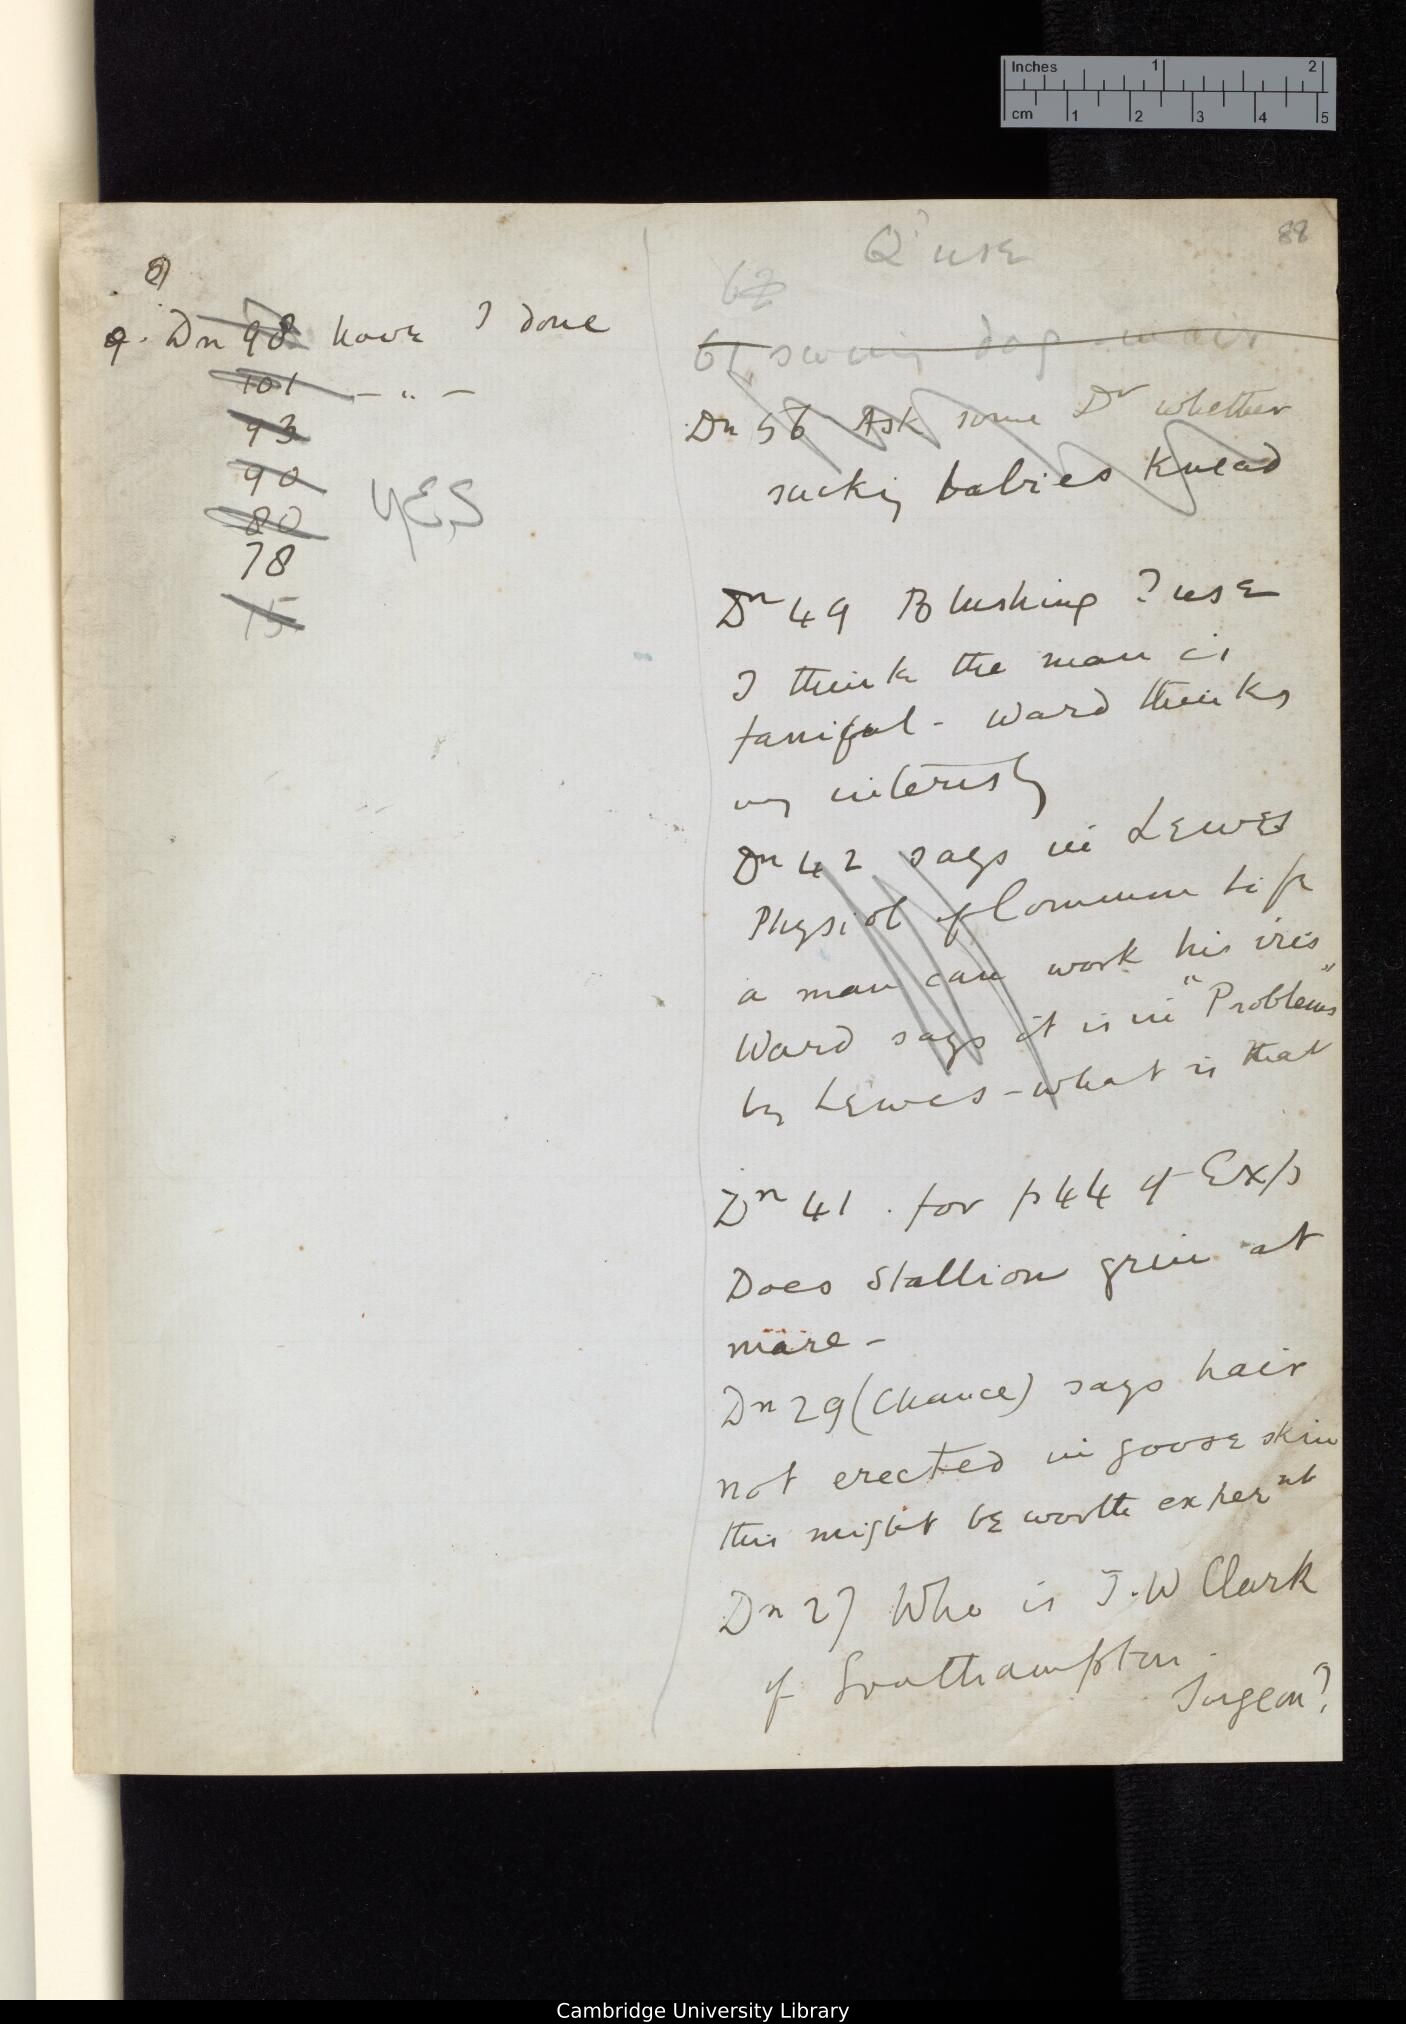 Inches 1 2
cm 1 2 3 4 5
88
Q' use
62
9. Dn 98 have I done
101 — " —
93
90
80
YES
78
15
61 dog
Dn 56 Ask some Dr whether
sucking babies knead
Dn 49 Blushing ? use
I think the man is
fanciful - Ward thinks
very interestg
Dn 42 says in Lewes
Physiol of Common Life
a man can work his iris
Ward says it is in "Problems"
by Lewes - what is that
Dn 41 . for p 44 of Exp
Does Stallion grin at
mare -
Dn 29 (Chance) says hair
not erected in goose skin
this might be worth expernt
Dn 27 Who is J. W Clark
of Southampton.
Surgeon?
Cambridge University Library